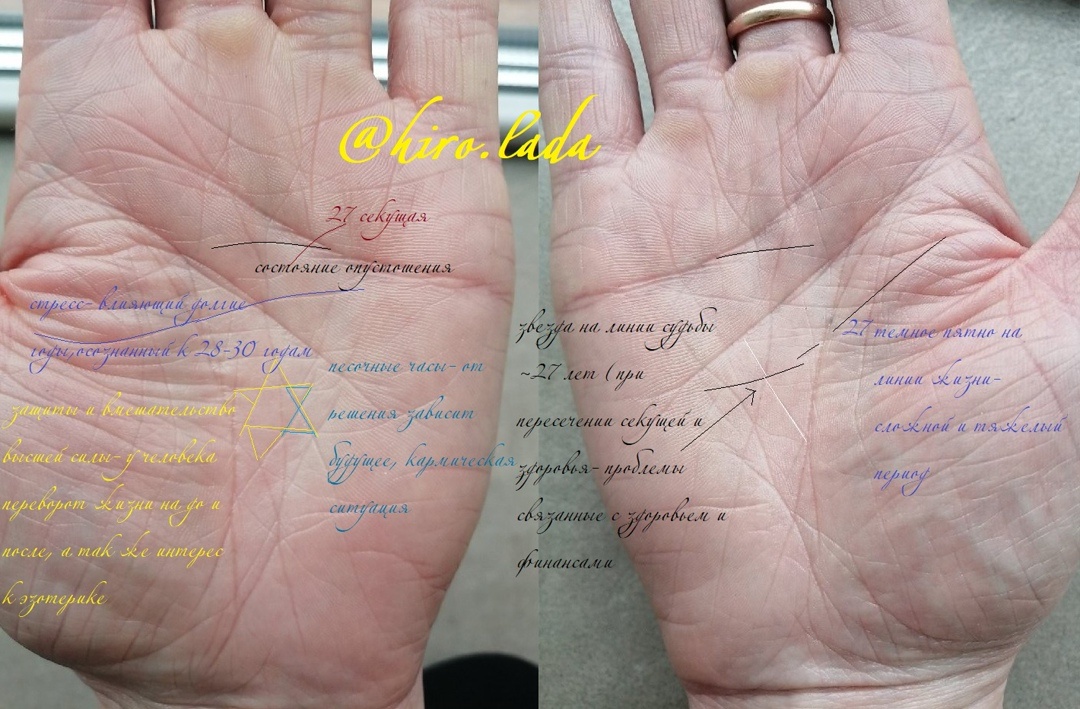 @hiro.lada
27 секущая
состояние опустошения
стресс- влияющий долгие
годы,осознанный к 28-30 годам
песочные часы- от
решения зависит
будущее, кармическая
ситуация
защиты и вмешательство
высшей силы- у человека
переворот жизни на до и
после, а так же интерес
к эзотерике
звезда на линии судьбы
~27 лет (при
пересечении секущей и
здоровья- проблемы
связанные с здоровьем и
финансами
27 темное пятно на
линии жизни-
сложной и тяжелый
период